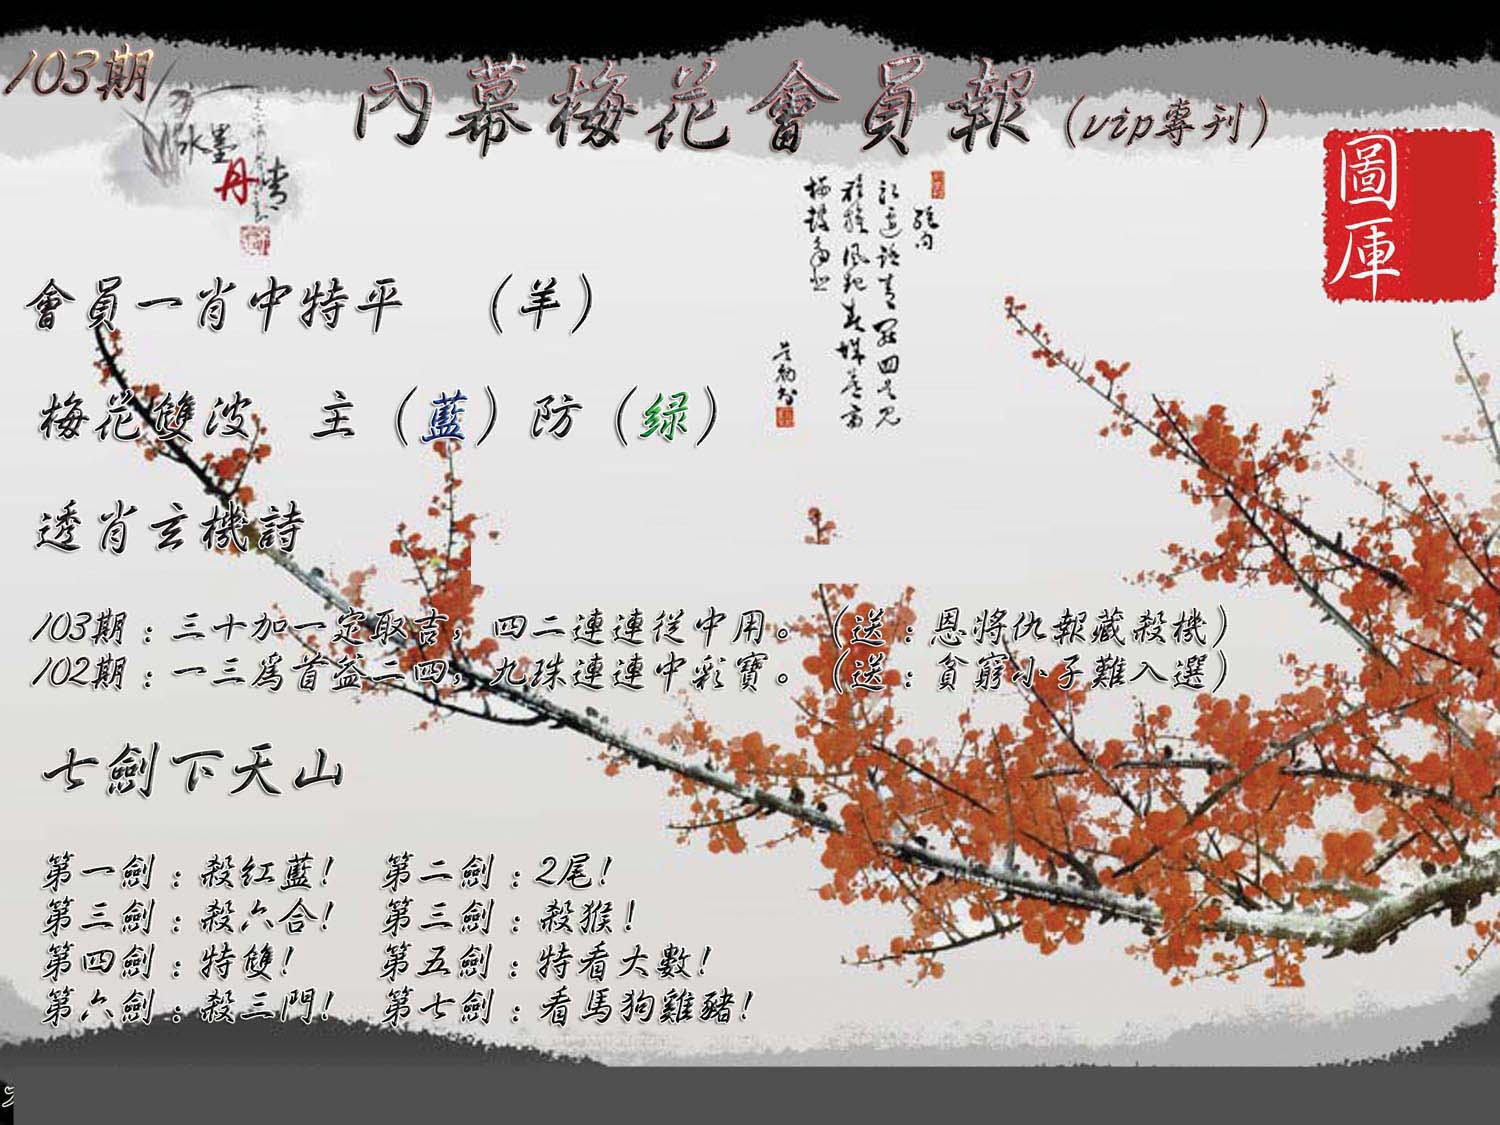 103期
內幕梅花會員報(vip專刊)
水墨
丹青
圖庫
會員一肖中特平 (羊)
梅花雙波 主(藍)防(绿)
透肖玄機詩
103期:三十加一定取吉,四二連連從中用。(送:恩將仇報藏殺機)
102期:一三爲首益二四,九珠連連中彩寶。(送:貧窮小子難入選)
七劍下天山
第一劍:殺红藍! 第二劍:2尾!
第三劍:殺六合! 第三劍:殺猴!
第四劍:特雙! 第五劍:特看大數!
第六劍:殺三門! 第七劍:看馬狗雞豬!